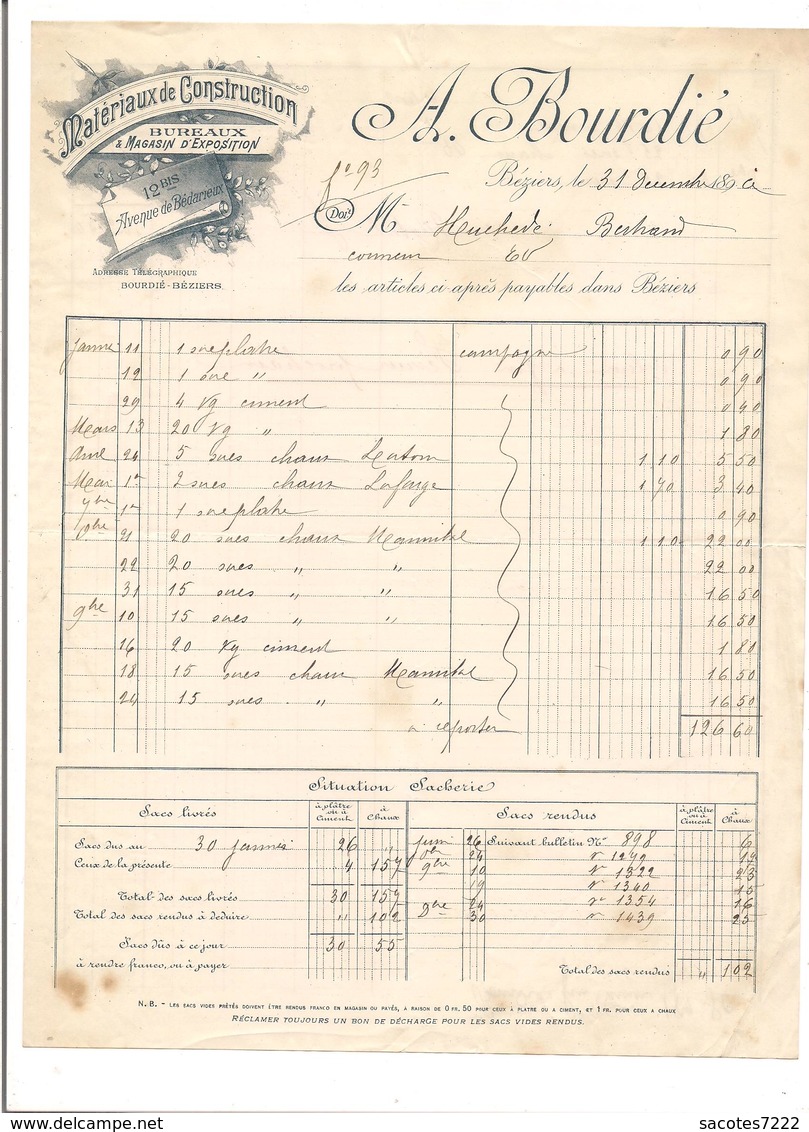 Matériaux de Construction
BUREAUX
& MAGASIN D'EXPOSITION
12 BIS
Avenue de Bédarieux
ADRESSE TÉLÉGRAPHIQUE
BOURDIÉ-BÉZIERS
A. Bourdié
fo 93
Béziers, le 31 Decembre 189
Doit M Huchede Bertrand
les articles ci-après payables dans Béziers
Janvier 11 1 sac platre campagne 0 90
12 1 sac " 0 90
29 4 Kg ciment 0 40
Mars 13 20 Kg " 1 80
Avril 24 5 sacs chaux 1,10 5 50
Mai 1er 2 sacs chaux Lafarge 1 70 3 40
7bre 1er 1 sac platre 0 90
8bre 21 20 sacs chaux 1 10 22 00
22 20 sacs " " 22 00
31 15 sacs " " 16 50
9bre 10 15 sacs " " 16 50
16 20 Kg ciment 1 80
18 15 sacs chaux 16 50
24 15 sacs " " 16 50
à reporter 126 60
Situation Sacherie
Sacs livrés à plâtre ou à Ciment à Chaux Sacs rendus à plâtre ou à Ciment à Chaux
Sacs dus au 30 janvier 26 " Juin 26 Suivant bulletin No 898 6
Ceux de la présente 4 157 24 1249
9bre 10 1322 23
Total des sacs livrés 30 157 19 1340 15
Total des sacs rendus à déduire " 102 24 1354 16
30 1439 25
Sacs dûs à ce jour 30 55
à rendre franco, ou à payer Total des sacs rendus " 102
N.B. - LES SACS VIDES PRÊTÉS DOIVENT ÊTRE RENDUS FRANCO EN MAGASIN OU PAYÉS, A RAISON DE 0 FR. 50 POUR CEUX À PLATRE OU A CIMENT, ET 1 FR. POUR CEUX A CHAUX
RÉCLAMER TOUJOURS UN BON DE DÉCHARGE POUR LES SACS VIDES RENDUS.
delcampe.net
sacotes7222